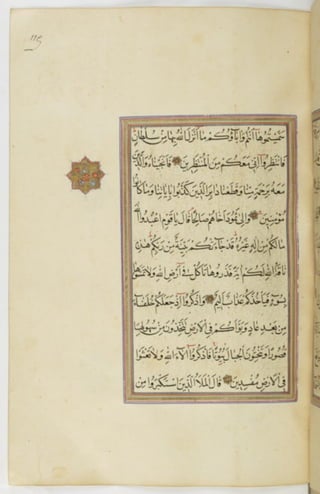 ١١٥
سَمَّيْتُمُوهَا أَنْتُمْ وَآبَاؤُكُمْ مَا أَنْزَلَ اللَّهُ بِهَا مِنْ سُلْطَانٍ
فَانْتَظِرُوا إِنِّي مَعَكُمْ مِنَ الْمُنْتَظِرِينَ فَأَنْجَيْنَاهُ وَالَّذِينَ
مَعَهُ بِرَحْمَةٍ مِنَّا وَقَطَعْنَا دَابِرَ الَّذِينَ كَذَّبُوا بِآيَاتِنَا وَمَا كَانُوا
مُؤْمِنِينَ وَإِلَى ثَمُودَ أَخَاهُمْ صَالِحًا قَالَ يَا قَوْمِ اعْبُدُوا اللَّهَ
مَا لَكُمْ مِنْ إِلَهٍ غَيْرُهُ قَدْ جَاءَتْكُمْ بَيِّنَةٌ مِنْ رَبِّكُمْ هَذِهِ
نَاقَةُ اللَّهِ لَكُمْ آيَةً فَذَرُوهَا تَأْكُلْ فِي أَرْضِ اللَّهِ وَلَا تَمَسُّوهَا
بِسُوءٍ فَيَأْخُذَكُمْ عَذَابٌ أَلِيمٌ وَاذْكُرُوا إِذْ جَعَلَكُمْ خُلَفَاءَ
مِنْ بَعْدِ عَادٍ وَبَوَّأَكُمْ فِي الْأَرْضِ تَتَّخِذُونَ مِنْ سُهُولِهَا
قُصُورًا وَتَنْحِتُونَ الْجِبَالَ بُيُوتًا فَاذْكُرُوا آلَاءَ اللَّهِ وَلَا تَعْثَوْا
فِي الْأَرْضِ مُفْسِدِينَ قَالَ الْمَلَأُ الَّذِينَ اسْتَكْبَرُوا مِنْ